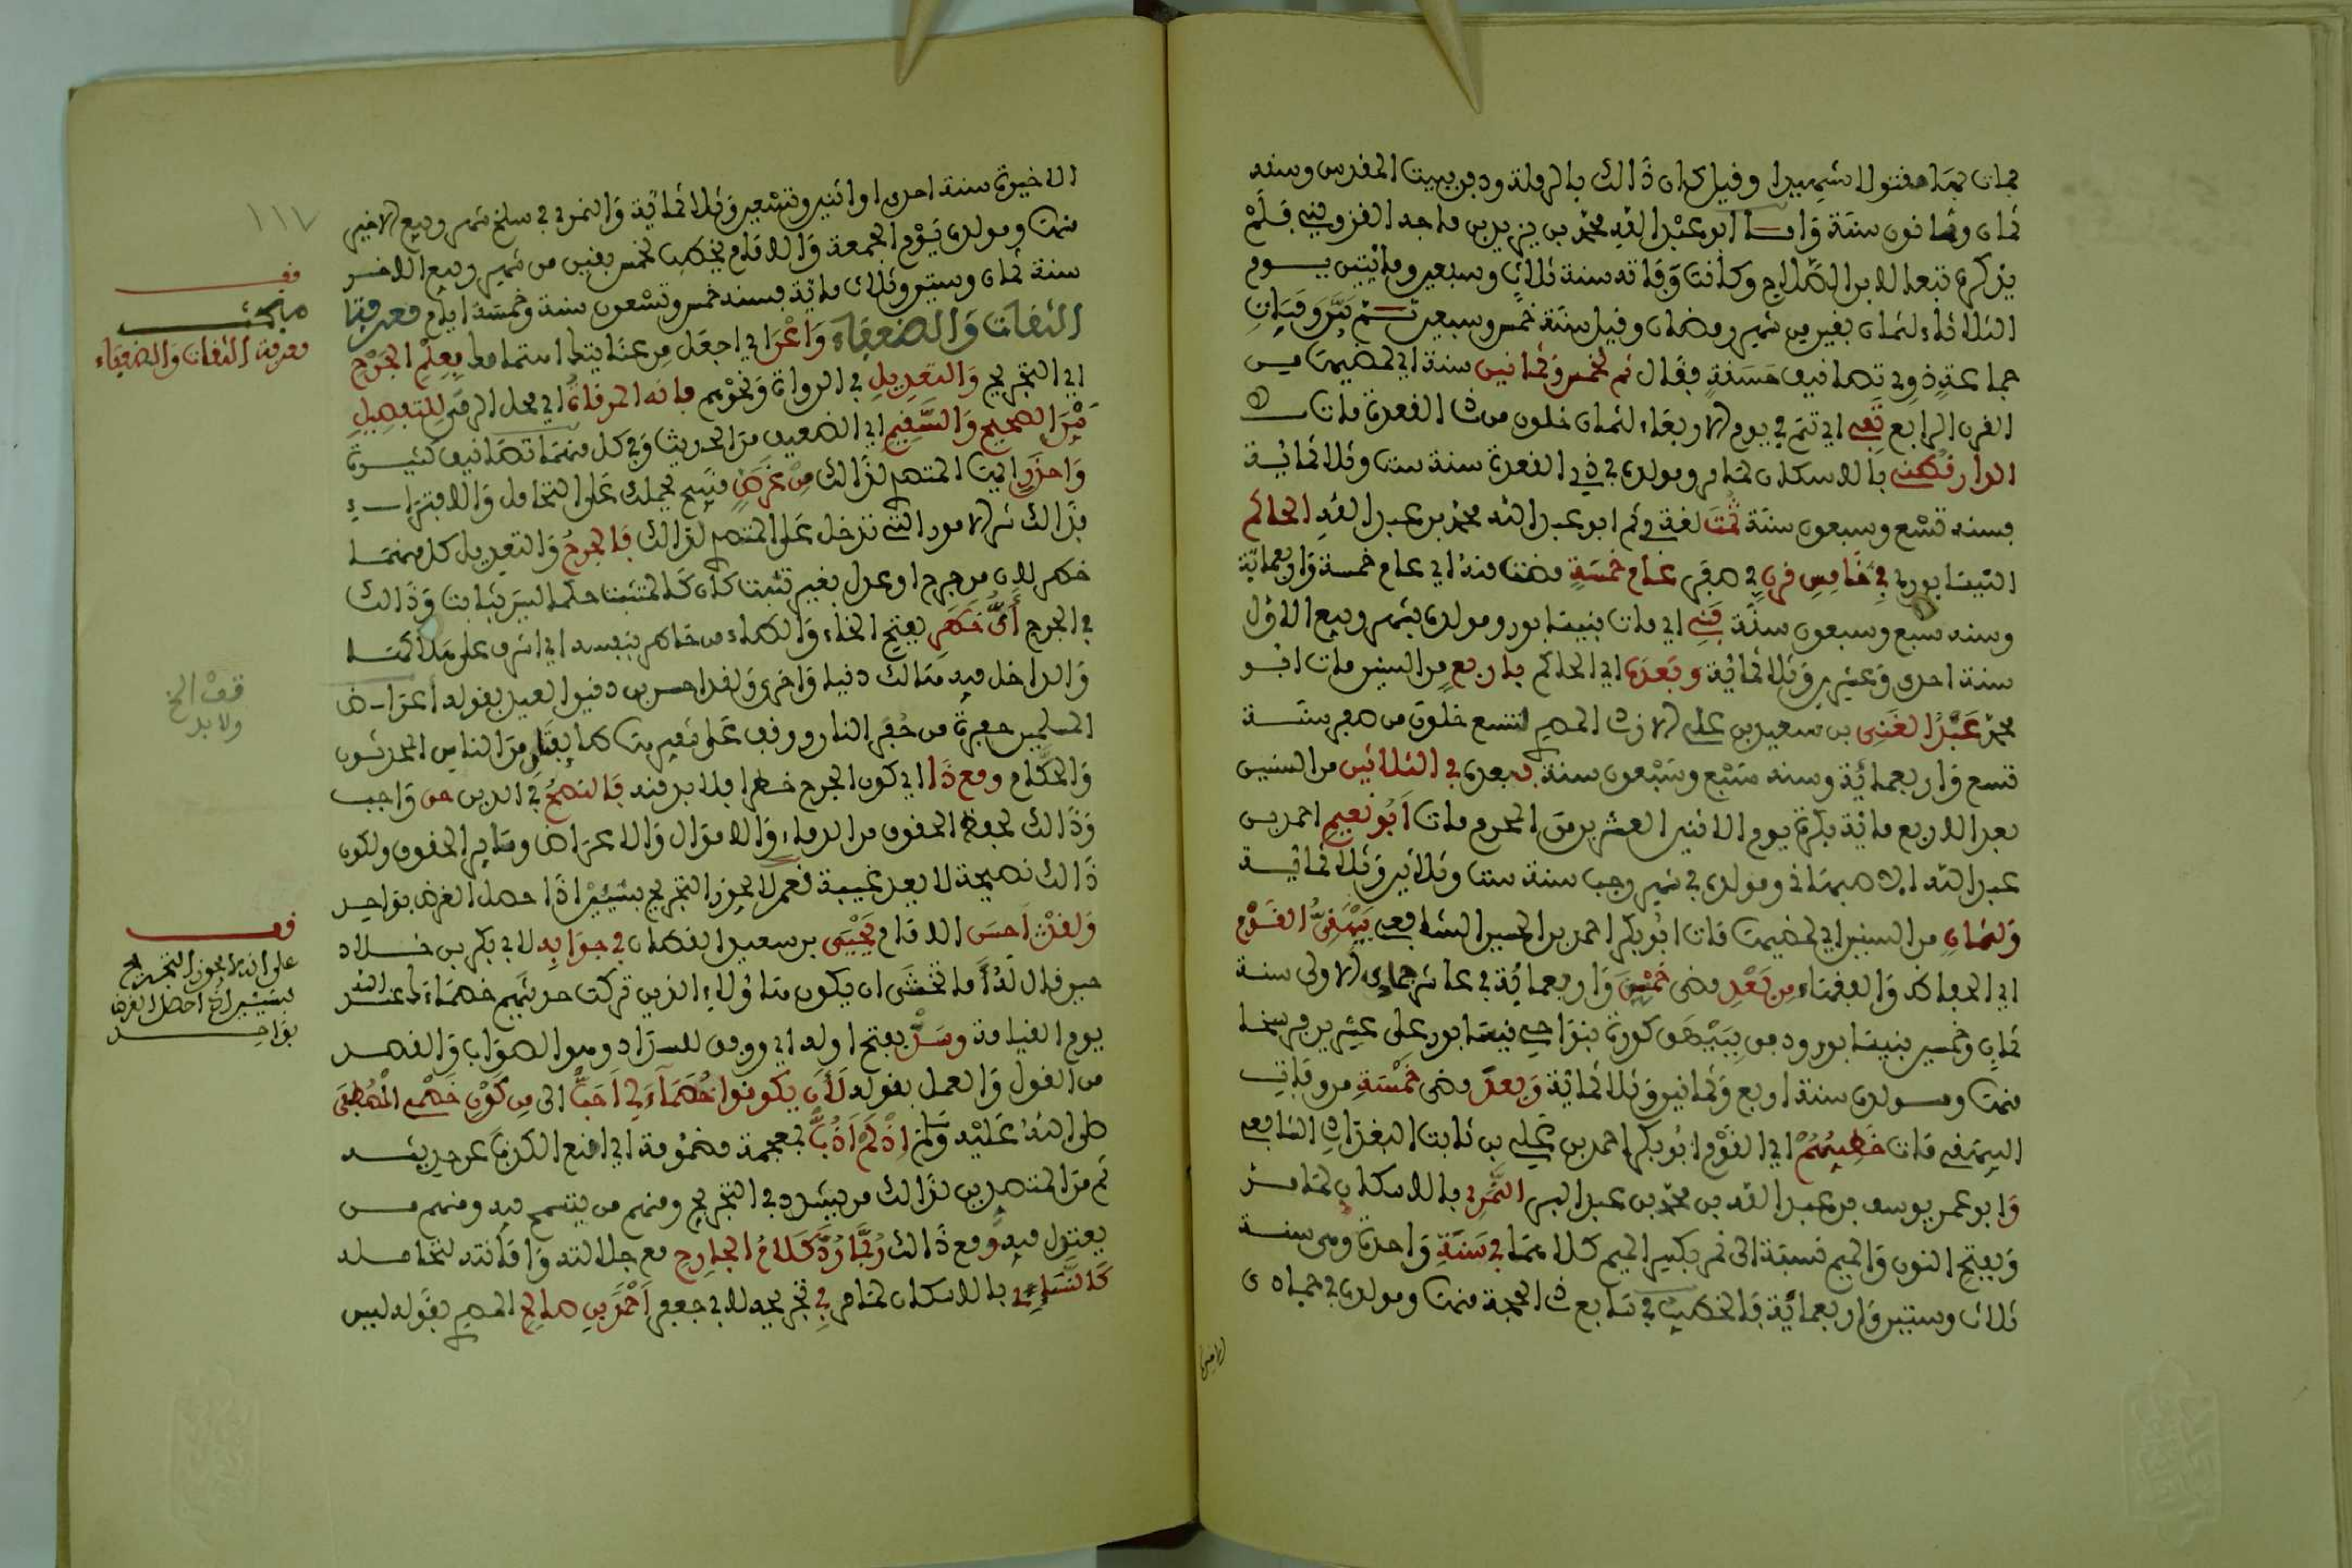 فمات بها مقتولا شهيدا وقيل كان ذالك بالرملة ودفن ببيت المقدس وسنه
ثمان وثمانون سنة وأما ابو عبد الله محمد بن يزيد بن ماجه القزويني فلم
يذكره تبعا لابن الصلاح وكانت وفاته سنة ثلاث وسبعين ومائتين يوم
الثلاثاء لثمان بقين من شهر رمضان وقيل سنة خمس وسبعين ثم بيّن وفيات
جماعة ذوي تصانيف حسنة فقال ثم لخمس وثمانين سنة اي لمضيها من
القرن الرابع تفي اي تتم في يوم الاربعاء لثمان خلون من ذي القعدة مات
الدارقطني بالاسكان لما مر ومولده في ذي القعدة سنة ست وثلاثمائة
فسنه تسع وسبعون سنة ثمت لغة في ثم ابو عبد الله محمد بن عبد الله الحاكم
النيسابوري في خامس قرن في صفر عام خمسة مضت منه اي عام خمسة واربعمائة
وسنه سبع وسبعون سنة فني اي مات بنيسابور ومولده بشهر ربيع الاول
سنة احدى وعشرين وثلاثمائة وبعده اي الحاكم باربع من السنين مات ابو
محمد عبد الغني بن سعيد بن علي الازدي المصري لسبع خلون من صفر سنة
تسع واربعمائة وسنه سبع وسبعون سنة فبعده في الثلاثين من السنين
بعد الاربع مائة بكرة يوم الاثنين العشرين من المحرم مات أبو نعيم احمد بن
عبد الله الاصبهاني ومولده في شهر رجب سنة ست وثلاثين وثلاثمائة
ولثمان من السنين اي لمضيها مات ابو بكر احمد بن الحسين الشافعي بيهقي القوم
اي الحفاظ والفقهاء من بعد مضى خمسين واربعمائة في عاشر جمادى الاولى سنة
ثمان وخمسين بنيسابور ودفن ببيهق كورة بنواحي نيسابور على عشرين فرسخا
منها ومولده سنة اربع وثمانين وثلاثمائة وبعد مضى خمسة من وفاة
البيهقي مات خطيبهم اي القوم ابو بكر احمد بن علي بن ثابت البغدادي الشافعي
وابو عمر يوسف بن عبد الله بن محمد بن عبد البر النمري بالاسكان لما مر
وبفتح النون والميم نسبة الى نمر بكسر الميم كلاهما في سنة واحدة وهي سنة
ثلاث وستين واربعمائة فالخطيب في سابع ذي الحجة منها ومولده في جمادى
الاخيرة
الاخيرة سنة احدى او اثنين وتسعين وثلاثمائة والنمري في سلخ شهر ربيع الاخير
منها ومولده يوم الجمعة والامام يخطب لخمس بقين من شهر ربيع الاخر
سنة ثمان وستين وثلاث مائة فسنه خمس وتسعون سنة وخمسة ايام معرفة
الثقات والضعفاء واعن اي اجعل من عنايتك اهتمامك بعلم الجرح
اي التجريح والتعديل في الرواة ونحوهم فانه المرقاة اي محل الرقي للتفصيل
بين الصحيح والسقيم اي الضعيف من الحديث وفي كل منهما تصانيف كثيرة
واحذر ايها المتصدي لذالك من غرض فسيح يحملك على التحامل والافتراء
فذالك شر الامور التي تدخل على المتصدي لذالك فالجرح والتعديل كل منهما
خطر لان من جرح او عدل بغير تثبت كان كالمثبت حكما ليس بثابت وذالك
في الجرح أيّ خطر بفتح الخاء والطاء من خاطر بنفسه اي اشرف على هلاكها
والداخل فيه هالك دنيا واخرى ولقد احسن بن دقيق العيد بقوله اعراض
المسلمين حفرة من حفر النار ووقف على شفيرها طائفتان من الناس المحدثون
والحكام ومع ذا اي كون الجرح خطرا فلا بد منه فالنصح في الدين حق واجب
وذالك لحفظ الحقوق من الدماء والاموال والاعراض وسائر الحقوق ولكون
ذالك نصيحة لا يعد غيبة نعم لا يجوز التجريح بشيئين اذا حصل الغرض بواحد
ولقد احسن الامام يحيى بن سعيد القطان في جوابه لابي بكر بن خلاد
حين قال له أما تخشى ان يكون هؤلاء الذين تركت حديثهم خصماءك عند الله
يوم القيامة وسدّ بفتح اوله اي ووفق للسداد وهو الصواب والقصد
من القول والعمل بقوله لأن يكونوا خصماء لي احب الي من كون خصمي المصطفى
صلى الله عليه وسلم اذ لم اذب بمعجمة مضمومة اي امنع الكذب عن حديثه
ثم من المتصدين لذالك من يشدد في التجريح ومنهم من يتسمح فيه ومنهم من
يعتدل فيه ومع ذالك ربما رد كلام الجارح مع جلالته وامانته لتحامله
كالنسائي بالاسكان لما مر في تجريحه لابي جعفر احمد بن صالح المصري بقوله ليس
١١٧
قف
مبحث
معرفة الثقات والضعفاء
قف الخ
ولابد
قف
على انه لا يجوز التجريح
بشيئين اذا حصل الغرض
بواحد